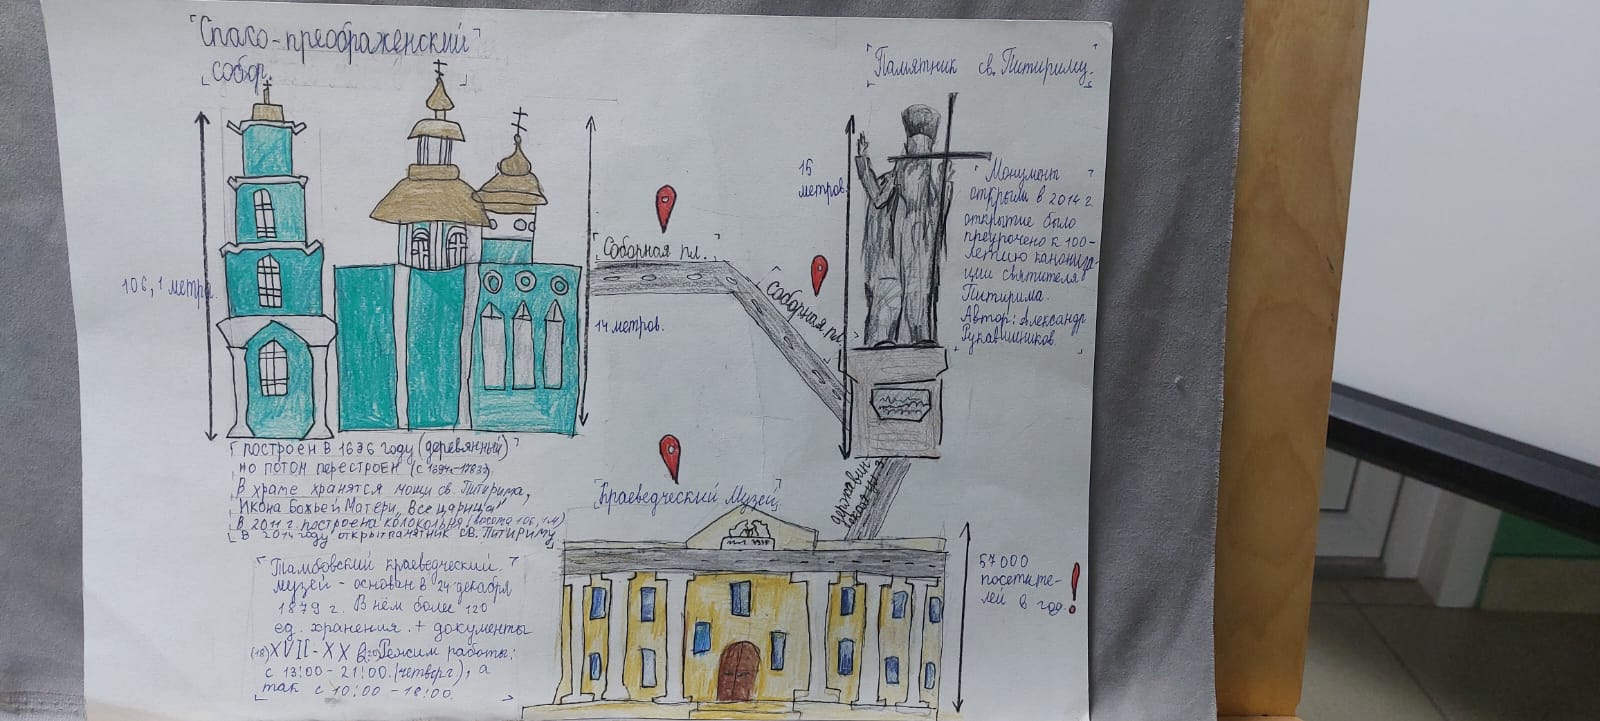 Спасо-преображенский
собор.
106,1 метра.
14 метров.
построен в 1636 году (деревянный)
но потом перестроен (с 1694-1783)
В храме хранятся мощи св. Питирима,
Икона Божьей Матери, Всецарица"
В 2011 г. построена колокольня (высота 106,1м)
В 2014 году открыт памятник св. Питириму
Соборная пл.
Соборная пл.
Памятник св. Питириму.
15
метров.
Монумент
открыли в 2014 г.
открытие было
преурочено к 100-
летию канониза-
ции святителя
Питирима.
Автор: Александр
Рукавишников.
Державин
ская ул.
Краеведческий Музей
57000
посетите-
лей в год!
Тамбовский краеведческий
музей - основан в 24 декабря
1879 г. В нём более 120
ед. хранения. + документы
(18) XVII-XX в.(20) Режим работы:
с 13:00-21:00.(четверг), а
так с 10:00-18:00.